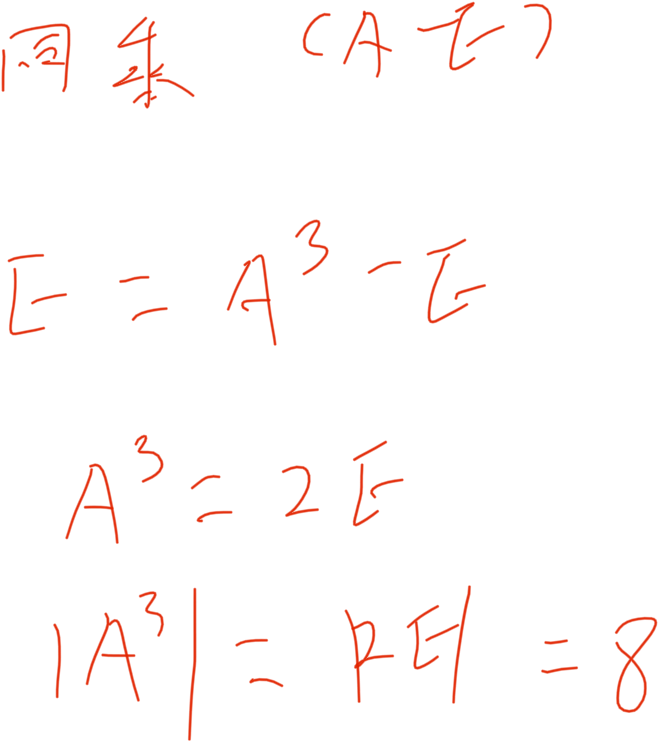 同乘 (A-E)
E = A³ - E
A³ = 2E
|A³| = |2E| = 8